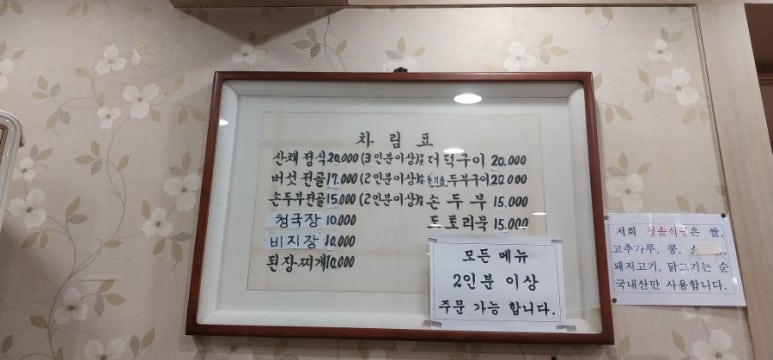 차림표
산채정식 20,000 (3인분이상) 더덕구이 20,000
버섯전골 17,000 (2인분이상) 두부구이 20,000
손두부전골 15,000 (2인분이상) 손두부 15,000
청국장 10,000 도토리묵 15,000
비지장 10,000
된장찌개 10,000
모든 메뉴
2인분 이상
주문 가능 합니다.
저희 청솔식당은 쌀,
고추가루, 콩,
돼지고기, 닭고기는 순
국내산만 사용합니다.